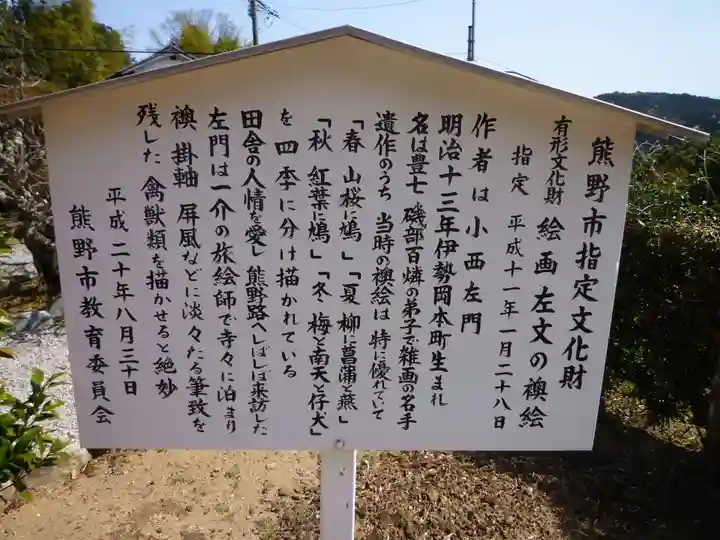 熊野市指定文化財
有形文化財 絵画左文の襖絵
指定 平成十一年一月二十八日
作者は小西左門
明治十三年伊勢岡本町生まれ
名は豊七 磯部百燐の弟子で雑画の名手
遺作のうち 当時の襖絵は 特に優れていて
「春 山桜に鳩」「夏 柳に菖蒲と燕」
「秋 紅葉に鳩」「冬 梅と南天と仔犬」
を四季に分け描かれている
田舎の人情を愛し 熊野路へしばしば来訪した
左門は一介の旅絵師で寺々に泊まり
襖 掛軸 屏風などに淡々たる筆致を
残した 禽獣類を描かせると絶妙
平成二十年八月三十日
熊野市教育委員会